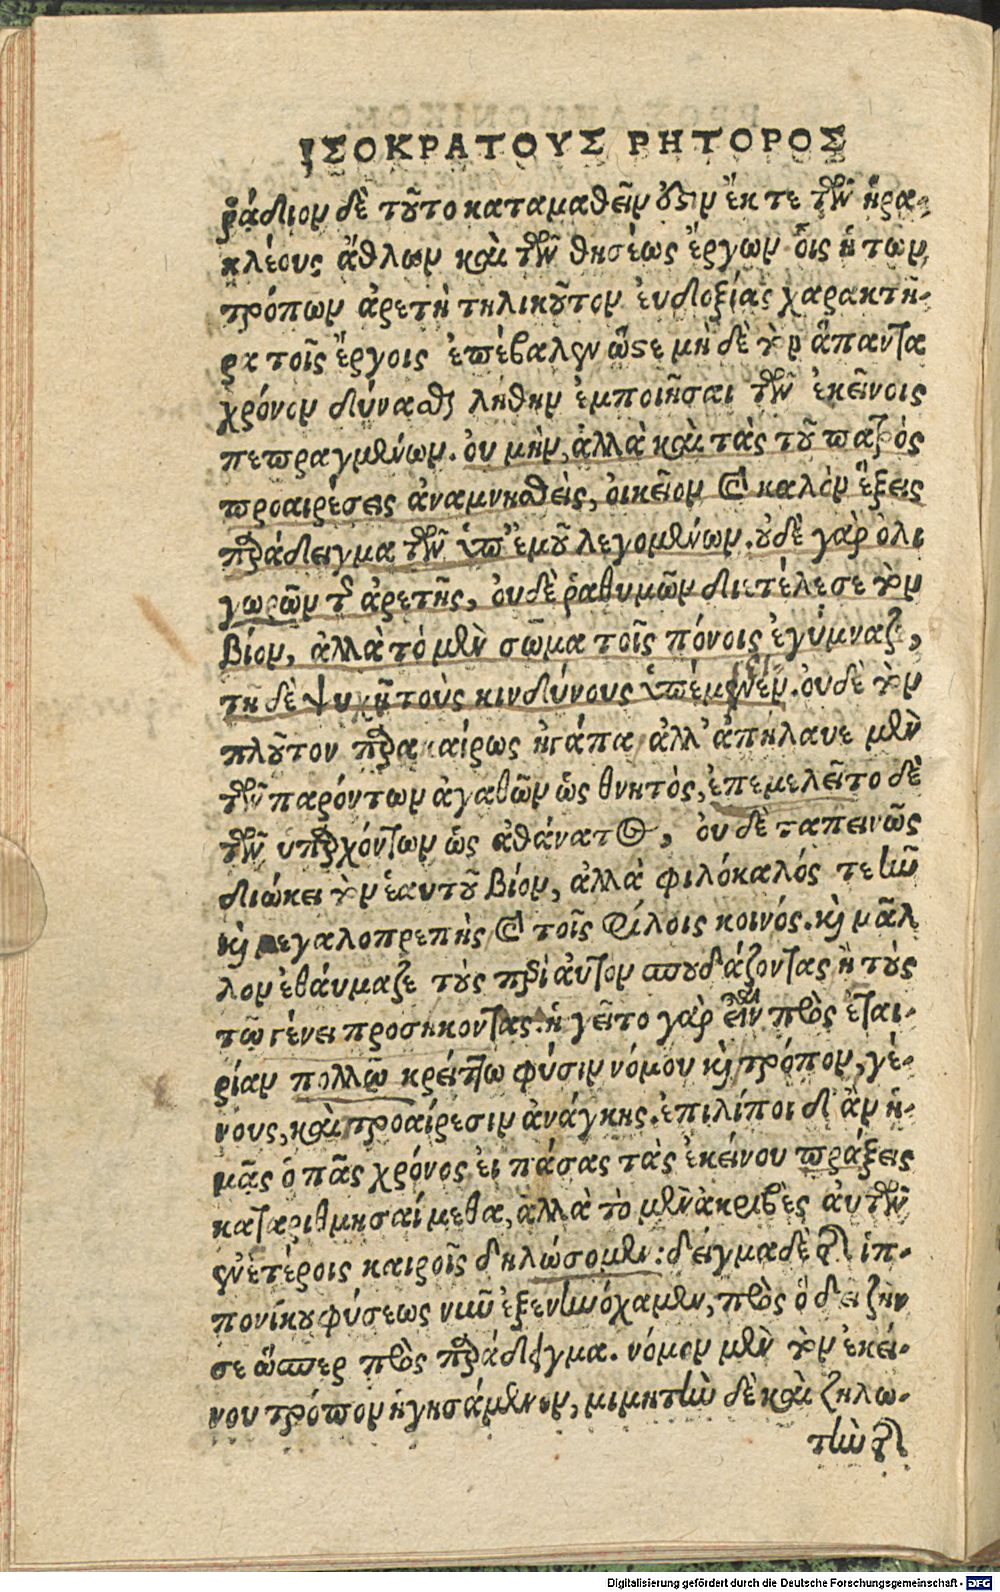 ἸΣΟΚΡΑΤΟΥΣ ΡΗΤΟΡΟΣ
ῥάδιον δὲ τοῦτο καταμαθεῖν ὅστιν ἔκ τε τῶν ἡρα-
κλέους ἄθλων καὶ τῶν θησέως ἔργων οἷς ἡ τῶν
τρόπων ἀρετὴ τηλικοῦτον ἐυδοξίας χαρακτῆ-
ρα τοῖς ἔργοις ἐπέβαλεν ὥστε μὴ δὲ τὸν ἅπαντα
χρόνον δύνασθαι λήθην ἐμποιῆσαι τῶν ἐκεῖνοις
πεπραγμένων. ὀυ μὴν, ἀλλὰ καὶ τὰς τοῦ πατρός
προαιρέσεις ἀναμνησθεὶς, ὀικεῖον καὶ καλὸν ἕξεις
παράδειγμα τῶν ὑπ᾽ ἐμοῦ λεγομένων. οὐδὲ γὰρ ὀλι
γωρῶν τῆς ἀρετῆς, ὀυδὲ ῥαθυμῶν διετέλεσε τὸν
βίον, ἀλλὰ τὸ μὲν σῶμα τοῖς πόνοις ἐγύμναζε,
τῇ δὲ ψυχῇ τοὺς κινδύνους ὑπέμενεν. ὀυδὲ τὸν
πλοῦτον παρακαίρως ἠγάπα ἀλλ᾽ ἀπήλαυε μὲν
τῶν παρόντων ἀγαθῶν ὡς θνητὸς, ἐπεμελεῖτο δὲ
τῶν ὑπαρχόντων ὡς ἀθάνατος, ὀυ δὲ ταπεινῶς
διώκει τὸν ἑαυτοῦ βίον, ἀλλὰ φιλόκαλός τε ἦν
καὶ μεγαλοπρεπὴς καὶ τοῖς φίλοις κοινός. καὶ μᾶλ
λον ἐθάυμαζε τοὺς περὶ ἀυτον σπουδάζοντας ἢ τοὺς
τῷ γένει προσηκοντας. ἡ γεῖτο γὰρ εἶναι πρὸς ἑται-
ρίαν πολλῷ κρείττω φύσιν νόμου καὶ τρόπον, γέ-
νους, καὶ προαίρεσιν ἀνάγκης. ἐπιλίποι δ᾽ ἂν ἡ-
μᾶς ὁ πᾶς χρόνος ἐι πάσας τὰς ἐκείνου πράξεις
καταριθμησαίμεθα, ἀλλὰ τὸ μὲν ἀκριβὲς ἀυτῶν
ἐν ἑτέροις καιροῖς δηλώσομεν: δεῖγμα δὲ τῆς ἱπ-
πονίκου φύσεως νῦν ἐξενηνόχαμεν, πρὸς ὃ δει ζῆν
σε ὥσπερ πρὸς παράδειγμα. νόμον μὲν τὸν ἐκεί-
νου τρόπον ἡγησάμενον, μιμητὴν δὲ καὶ ζηλω-
τὴν τῆς
Digitalisierung gefördert durch die Deutsche Forschungsgemeinschaft - DFG